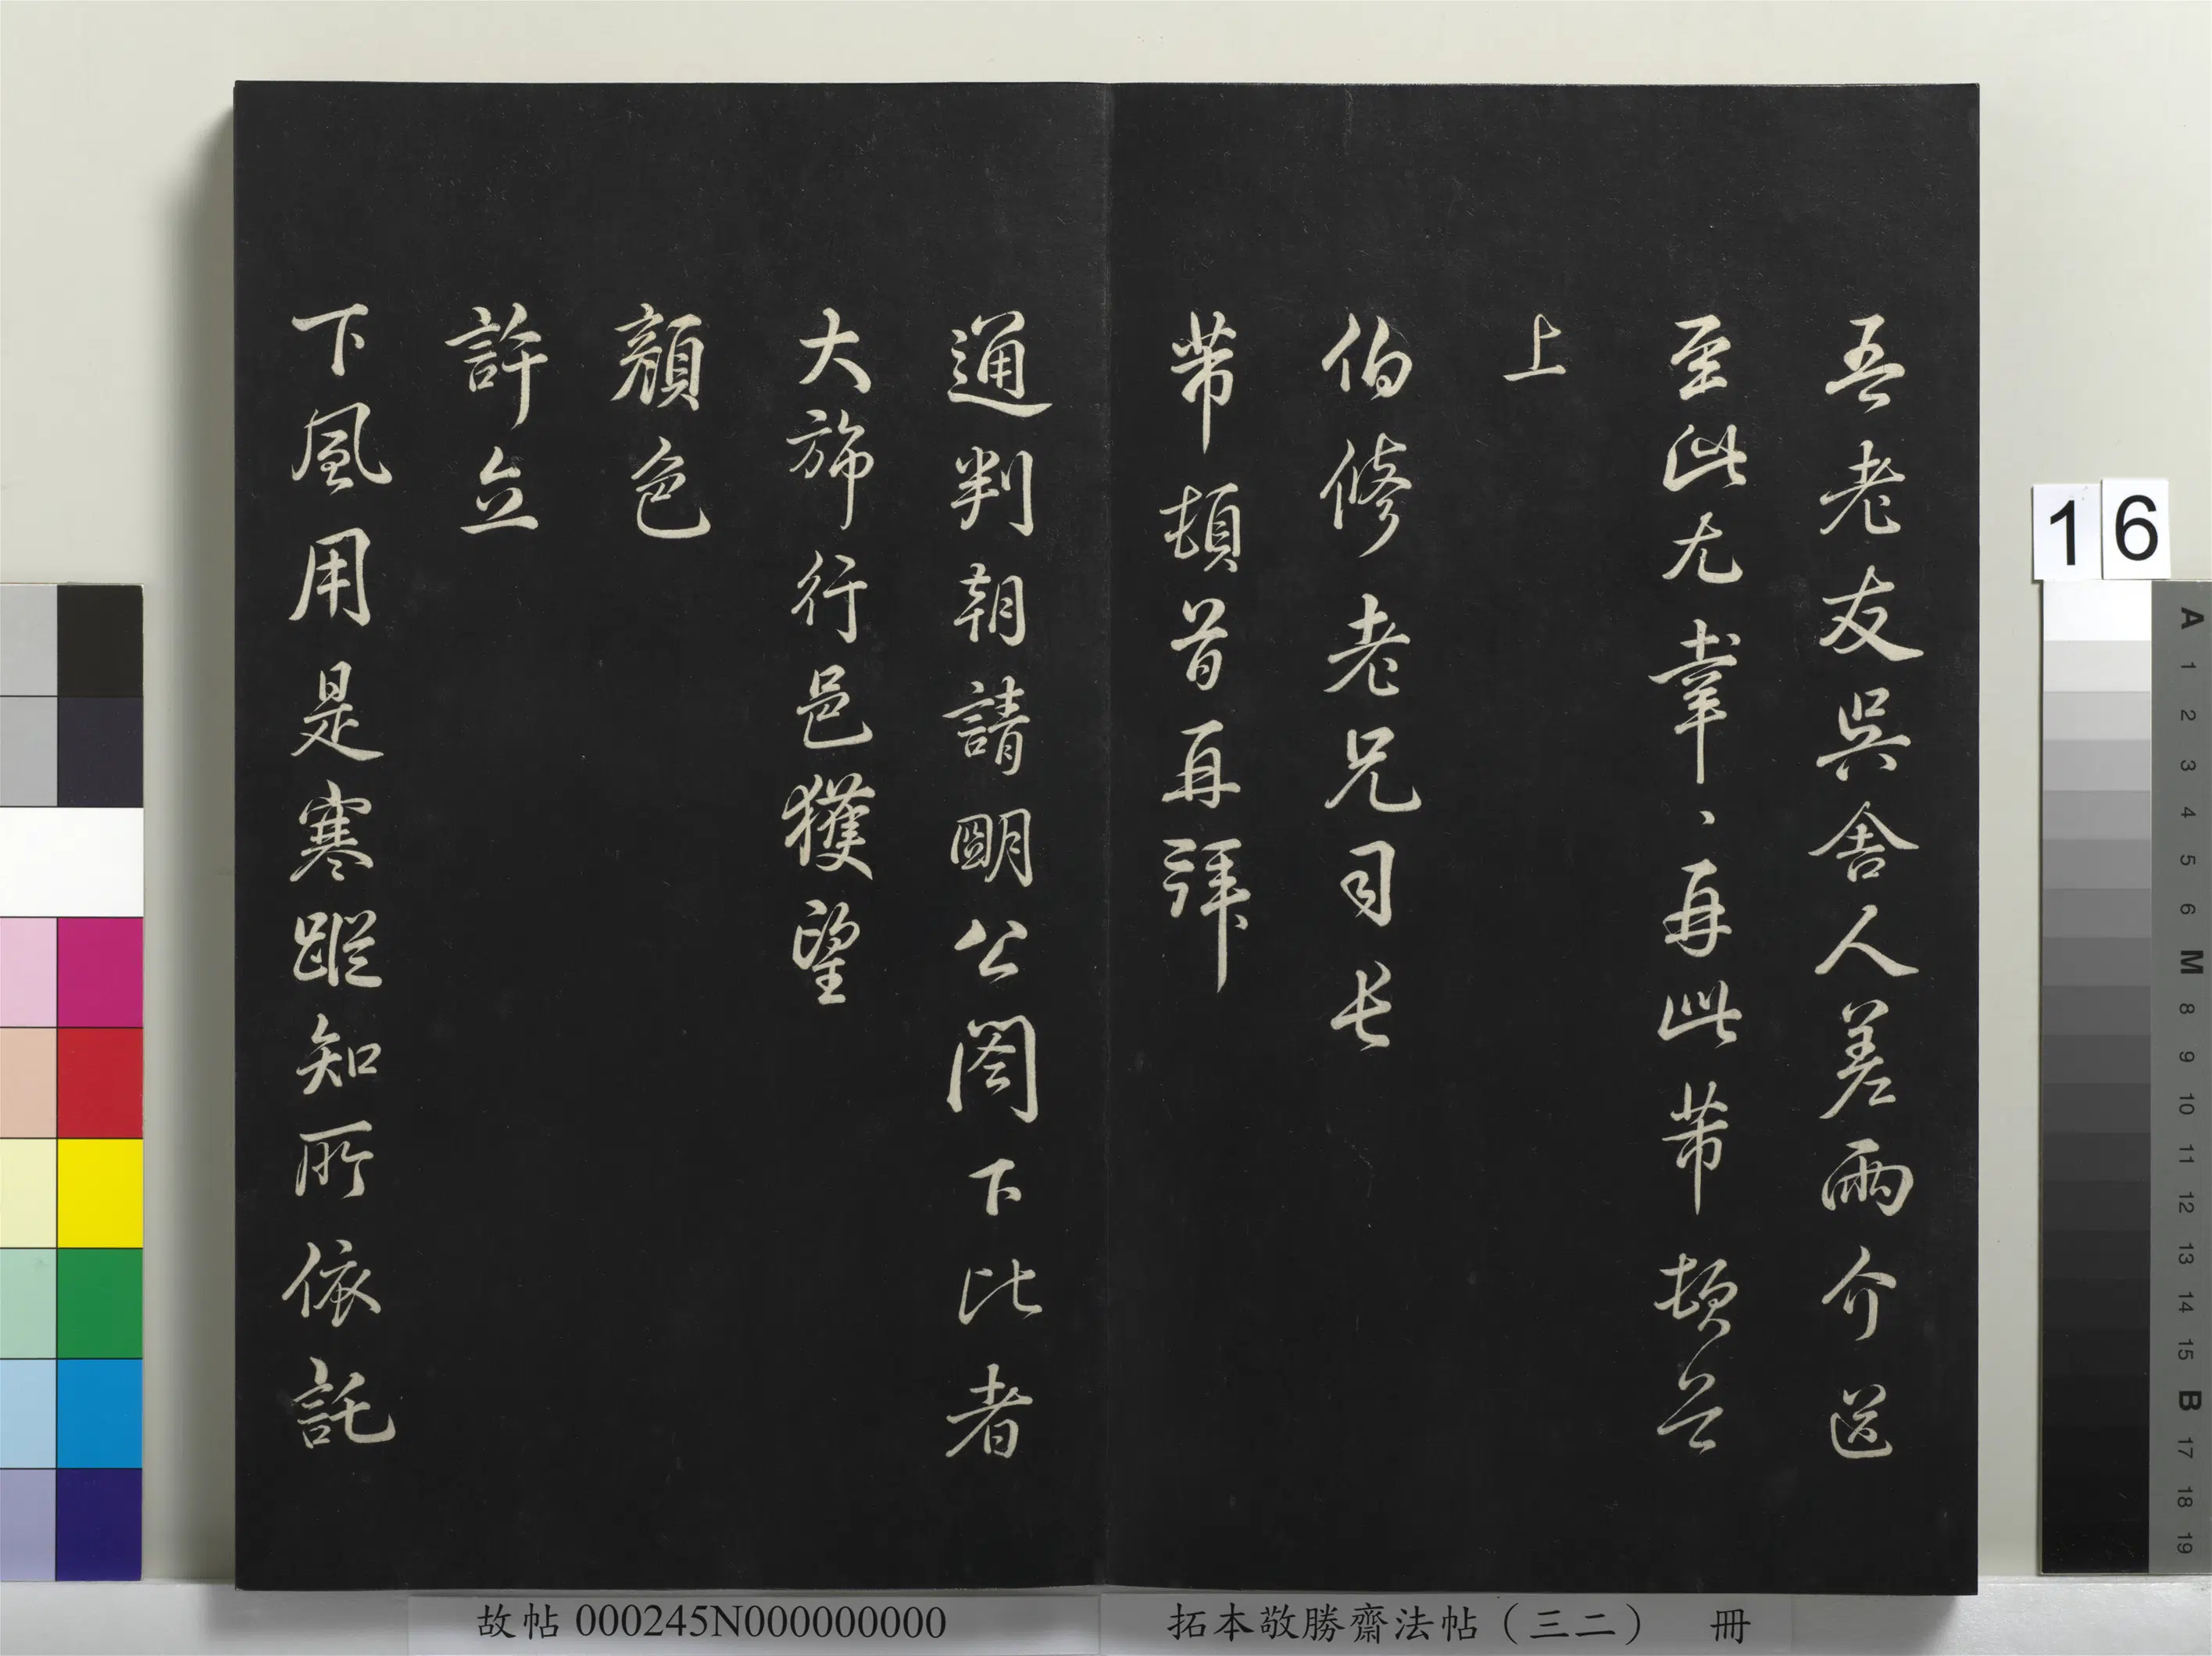 吾老友吳舍人差兩介送
至此尤幸、再此芾頓首
上
伯修老兄司長
芾頓首再拜
通判朝請明公閣下比者
大旆行邑獲望
顏色
許立
下風用是寒蹤知所依託
16
A 1 2 3 4 5 6 M 8 9 10 11 12 13 14 15 B 17 18 19
故帖 000245N000000000
拓本敬勝齋法帖（三二） 冊